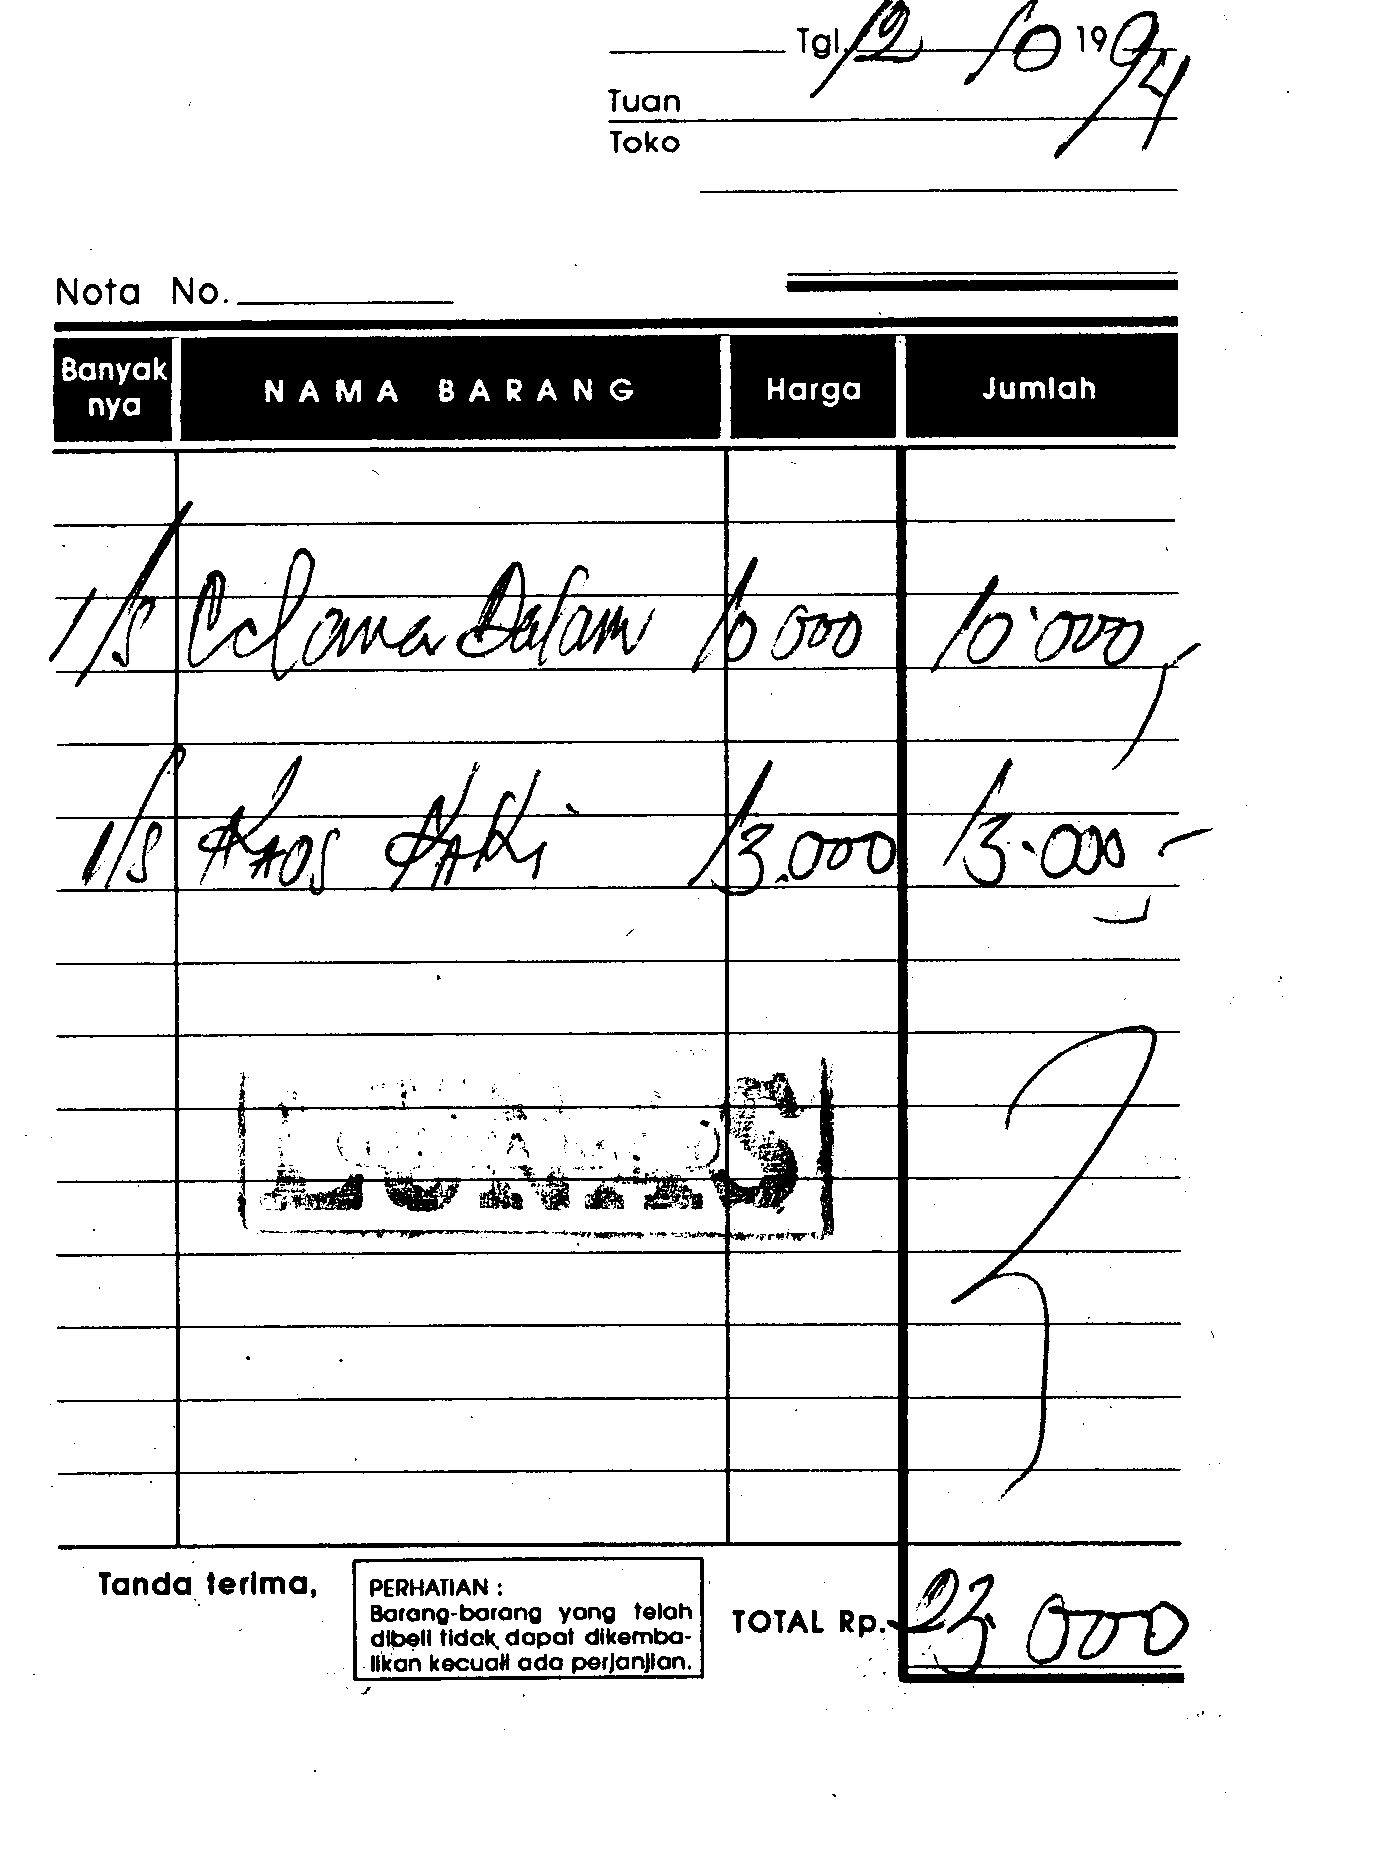 Tgl. 12/10 1994
Tuan
Toko
Nota No.
Banyak nya NAMA BARANG Harga Jumlah
1/s Celana Dalam 10 000 10.000,-
1/s KAOS KAKi 13.000 13.000 -
LUNAS
Tanda terima,
PERHATIAN :
Barang-barang yang telah
dibeli tidak dapat dikemba-
likan kecuali ada perjanjian.
TOTAL Rp. 23.000